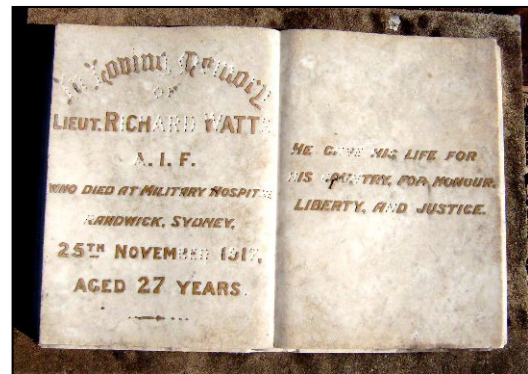 In Loving Memory
OF
LIEUT. RICHARD WATTS
A. I. F.
WHO DIED AT MILITARY HOSPITAL
RANDWICK, SYDNEY,
25TH NOVEMBER 1917,
AGED 27 YEARS.
HE GAVE HIS LIFE FOR
HIS COUNTRY, FOR HONOUR,
LIBERTY, AND JUSTICE.